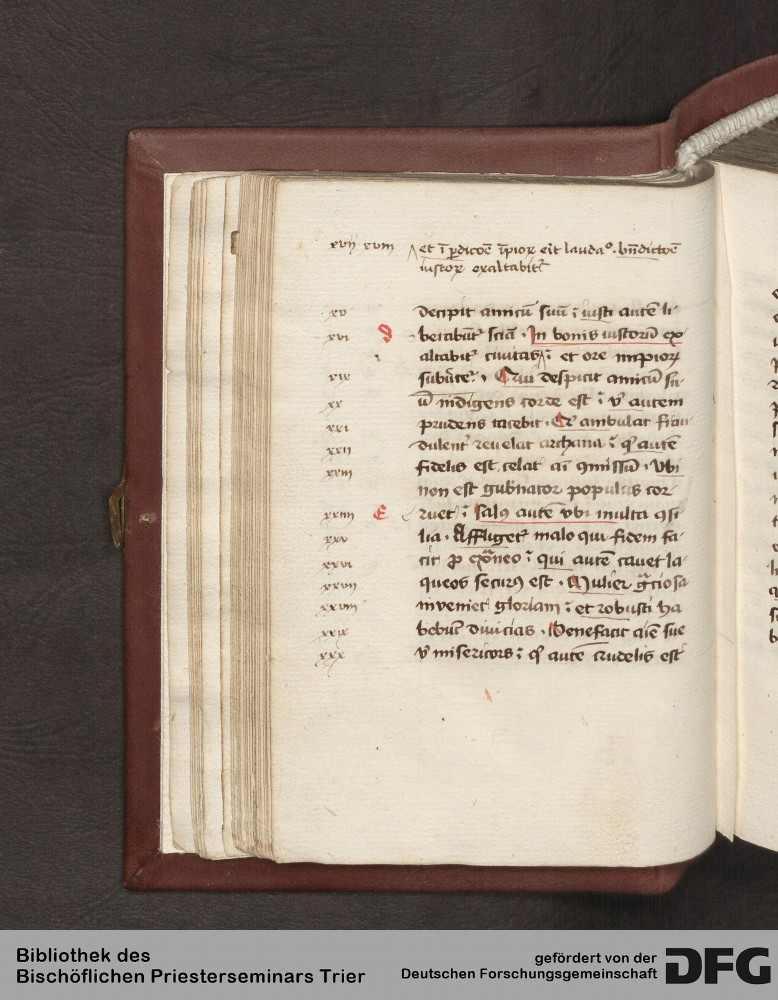 xvij xviii et ī ꝑdicōe īpioꝝ erit laudaᵒ. bn̄dictōe
iustoꝝ exaltabitᷣ
xv decipit amicū suū : iusti autē li-
xvi D berabūtᷣ sciā . In bonis iustorū ex
altabitᷣ civitas : et ore impioꝝ
xix subūtetᷣ . Qui despicit amicū su-
xx ū indigens corde est : vᵒ autem
xxi prudens tacebit . Qͥ ambulat frau
xxii dulentᷣ revelat archana : qͥ autē
xxiii fidelis est celat aī ꝯmissū . Vbi
non est gub̄nator populus cor-
xxiiii E ruet : salꝯ autē vbi multa ꝯsi
xxv lia . Affligetᷣ malo qui fidem fa-
xxvi cit ꝓ ext̄neo : qui autē cavet la-
xxvii queos securꝯ est . Mulier gͣciosa
xxviii inveniet gloriam : et robusti ha
xxix bebūt divicias . Benefacit aīe sue
xxx vͥ misericors : qͥ autē crudelis est
Bibliothek des
Bischöflichen Priesterseminars Trier
gefördert von der
Deutschen Forschungsgemeinschaft DFG